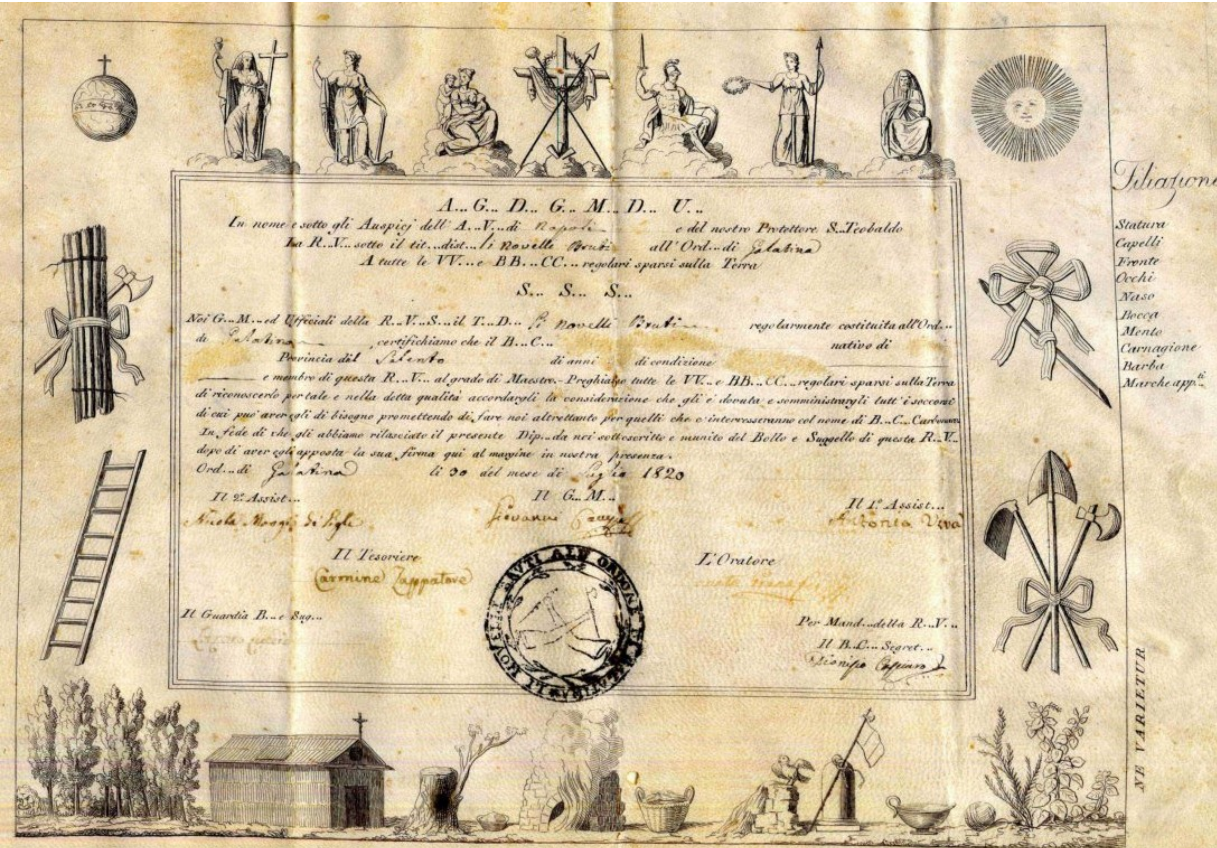 A... G... D... G... M... D... U...
In nome e sotto gli Auspicj dell' A...V...di Napoli e del nostro Protettore S...Teobaldo
La R...V...sotto il tit...dist...li Novelli Bruti all' Ord...di Galatina
A tutte le VV... e BB...CC... regolari sparsi sulla Terra
S... S... S...
Noi G...M...ed Uffiziali della R...V...S...il T...D... Li Novelli Bruti regolarmente costituita all' Ord...
di Galatina certifichiamo che il B...C... nativo di
Provincia del Salento di anni di condizione
e membro di questa R...V... al grado di Maestro... Preghiamo tutte le VV... e BB...CC... regolari sparsi sulla Terra
di riconoscerlo per tale e nella detta qualità accordargli la considerazione che gli è dovuta e somministrargli tutt' i soccorsi
di cui può aver egli di bisogno promettendo di fare noi altrettanto per quelli che c'interesseranno col nome di B...C...Carbonaro
In fede di che gli abbiamo rilasciato il presente Dip...da noi sottoscritto e munito del Bollo e Suggello di questa R...V...
dopo di aver egli apposta la sua firma qui al margine in nostra presenza.
Ord...di Galatina li 30 del mese di Luglio 1820
Il 2º Assist...
Il G...M...
Il 1º Assist...
Giovanni
Il Tesoriere
L'Oratore
Carmine Zappatore
Il Guardia B... e Sug...
Per Mand...della R...V...
Il B...C... Segret...
LI NOVELLI BRUTI ALL' ORDINE DI GALATINA
Filiazione
Statura
Capelli
Fronte
Occhi
Naso
Bocca
Mento
Carnagione
Barba
Marche app.ti
NE VARIETUR